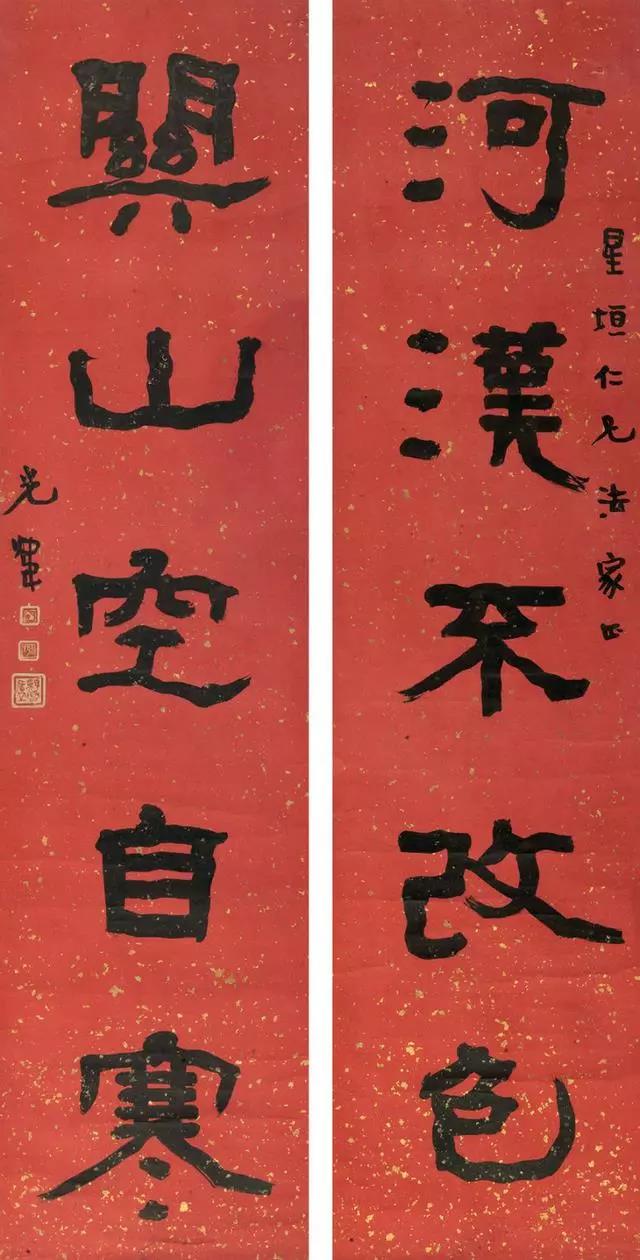 河漢不改色
星垣仁兄法家正
關山空自寒
光煇